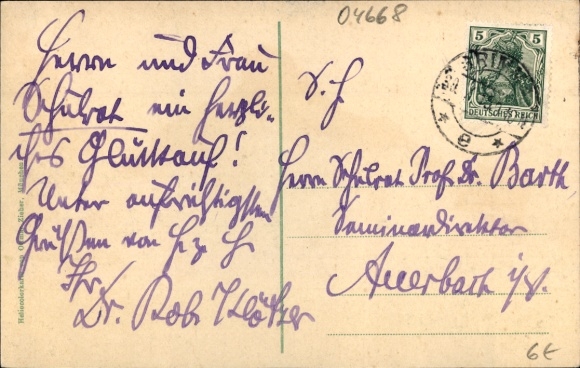 04668
Herrn und Frau
Schulrat ein herzli-
ches Glückauf!
Unter aufrichtigsten
Grüßen von H z H
Ihr
Dr. Rob.
S. H
Herrn Schulrat Prof. Dr. Barth
Seminardirektor
Auerbach i/V.
5 5
DEUTSCHES REICH
e
Ottmar Zieher, München
6€